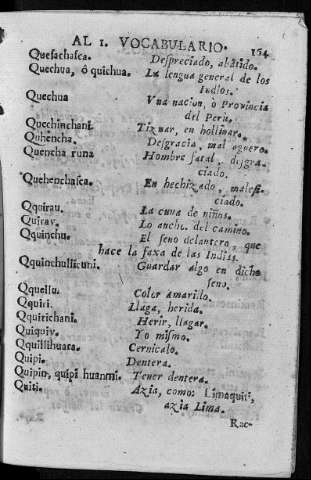 AL 1. VOCABULARIO. 164
Quesachasca. Despreciado, abatido.
Quechua, ô quichua. La lengua general de los
Indios.
Quechua Vna nacion, ò Provincia
del Peru.
Quechinchani. Tiznar, en hollinar.
Quhencha. Desgracia, mal aguero.
Quencha runa Hombre fatal, disgra-
ciado.
Quehenchasca. En hechizado, malefi-
ciado.
Qquirau. La cuna de niños.
Quscav. Lo anche. del camino.
Qquinchu. El seno delantero, que
hace la faxa de las Indias.
Qquinchullicuni. Guardar algo en dicho
seno.
Qquellu. Color amarillo.
Qquiri. Llaga, herida.
Qquirichani. Herir, llagar.
Quiquiv. Yo mismo.
Qquillihuara. Cernicalo.
Quipi. Dentera.
Quipin, quipi huanmi. Tener dentera.
Quiti. Azia, como: Limaquiti,
azia Lima.
Rac-